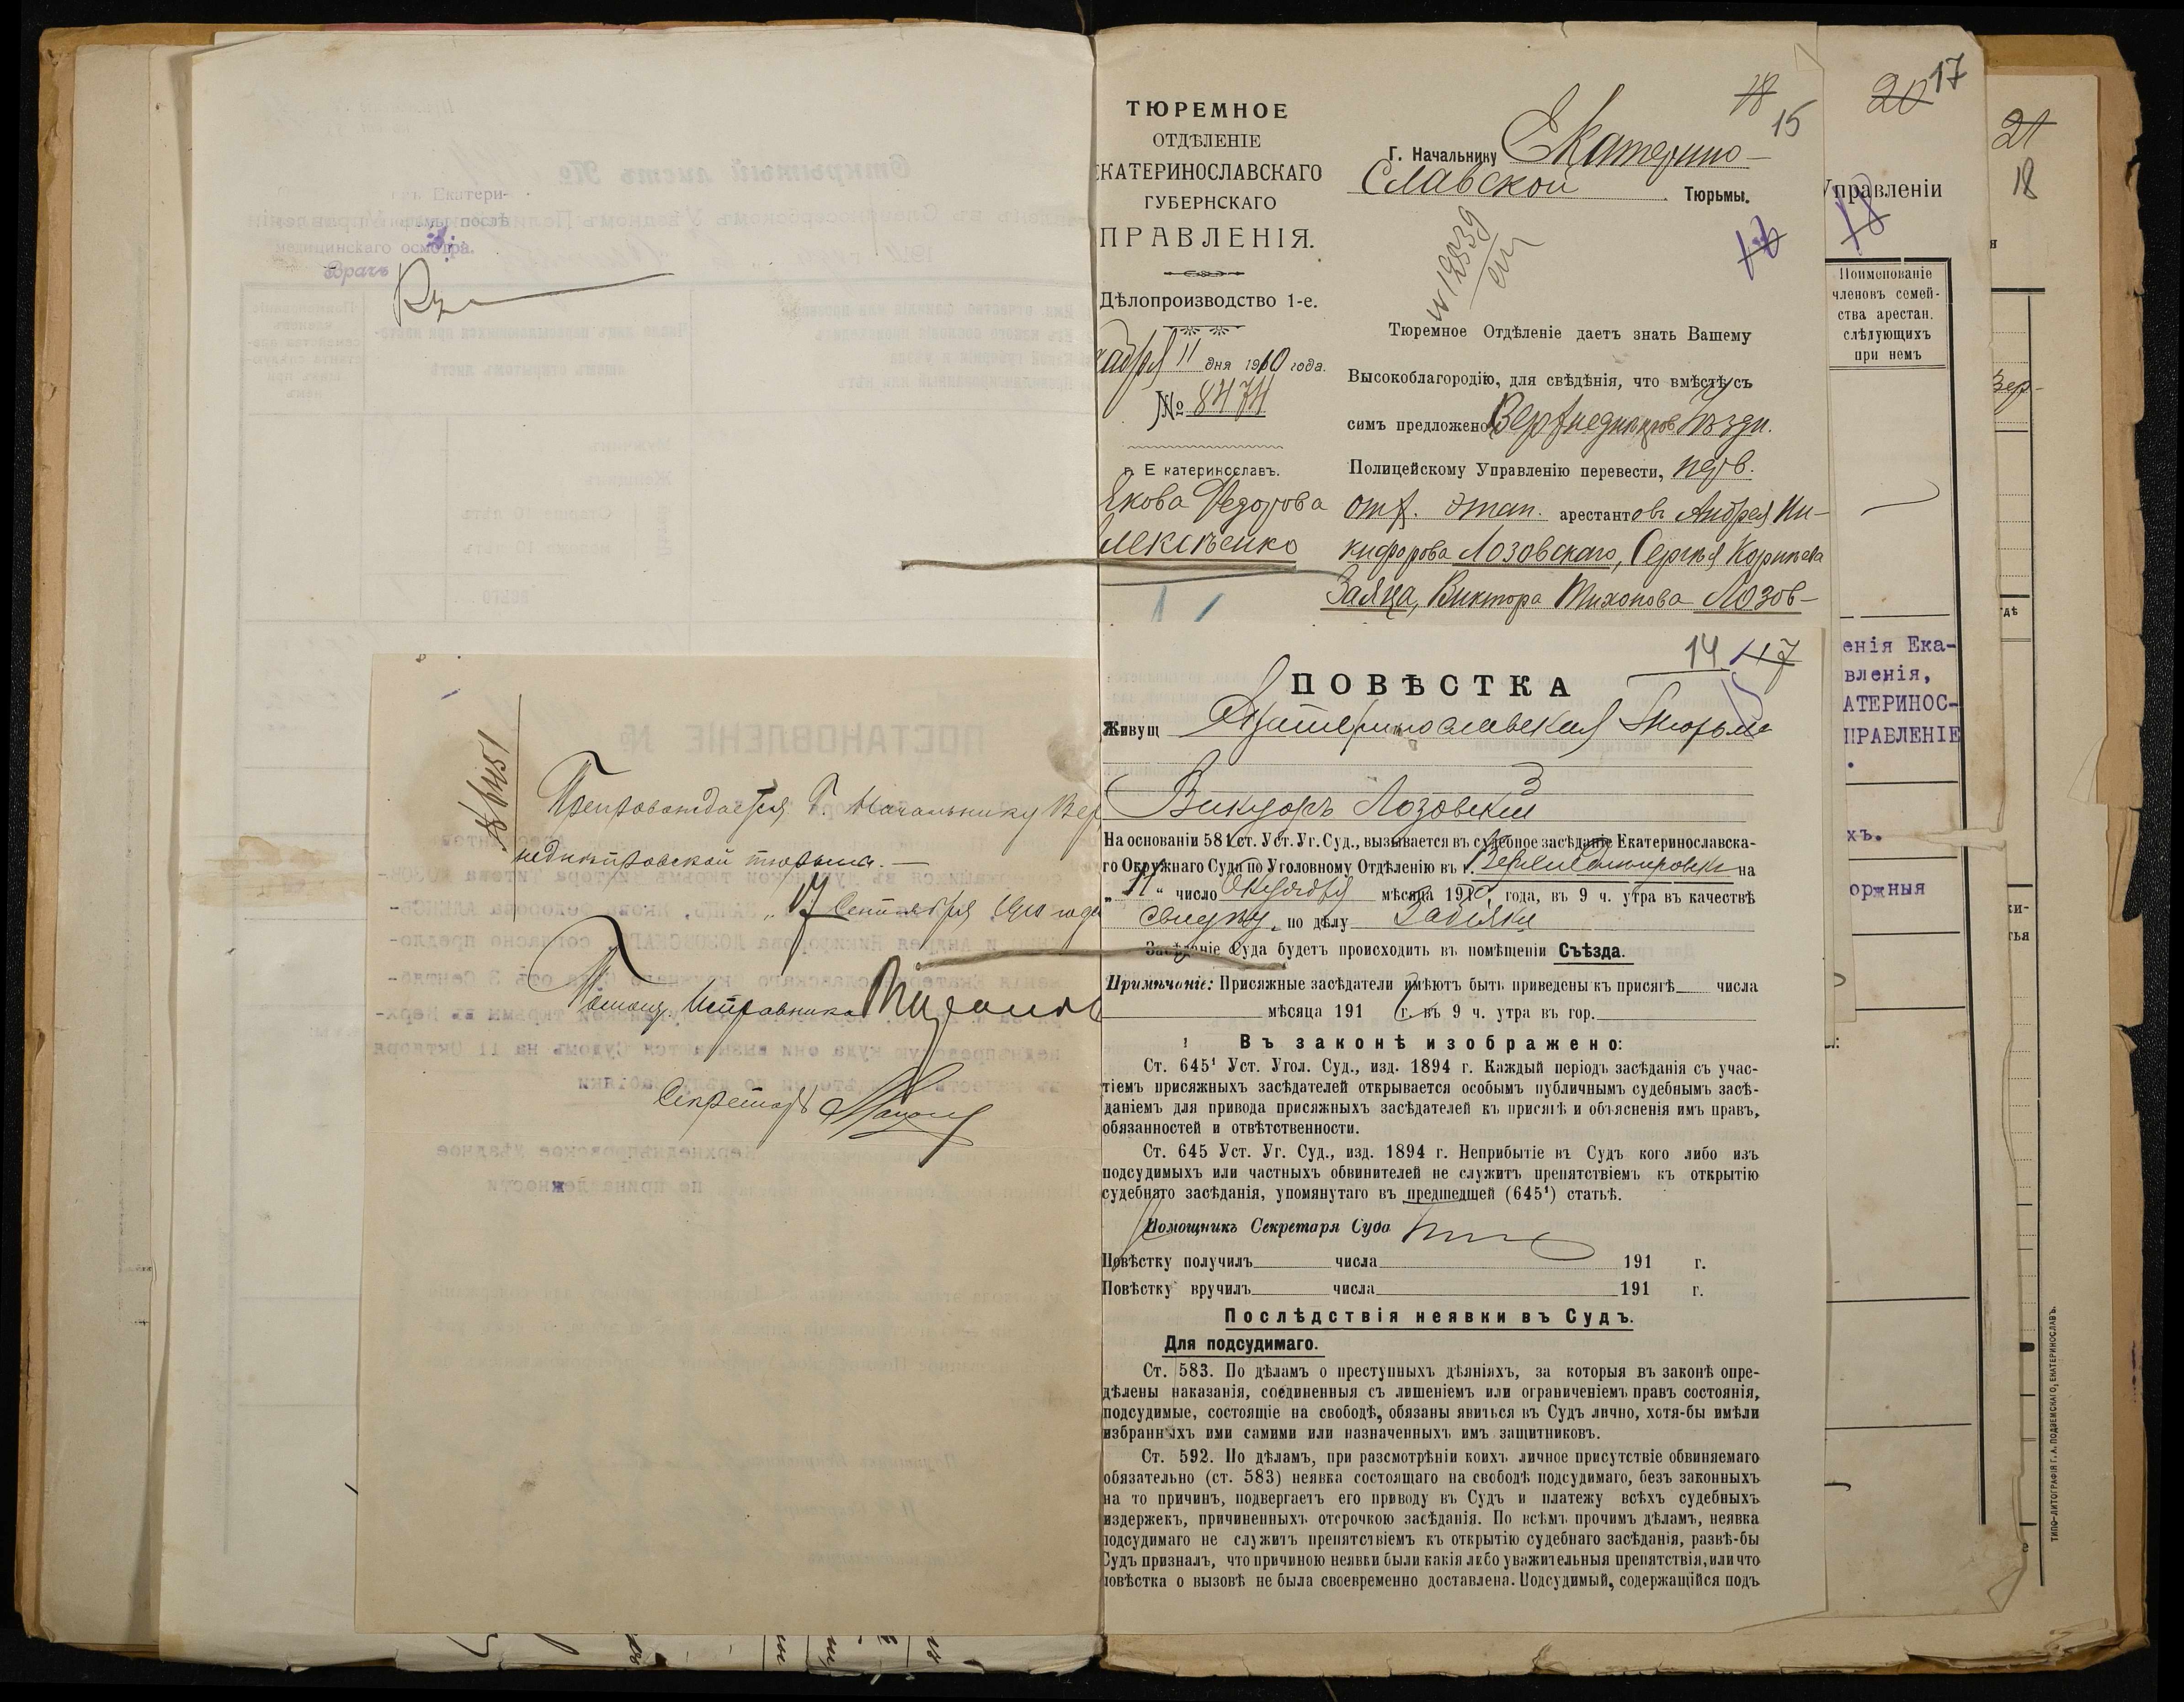 въ Екатери-
тюрьмы послѣ
медицинскаго осмотра.
Врачъ
№ 6451
Препровождается Г. Начальнику Вер
неднѣпровской тюрьмы. —
„17 Сентября 1910 года
Помощ. Исправника
Секретарь
18
15
ТЮРЕМНОЕ
ОТДѢЛЕНІЕ
ЕКАТЕРИНОСЛАВСКАГО
ГУБЕРНСКАГО
ПРАВЛЕНІЯ.
Дѣлопроизводство 1-е.
11 дня 1910 года.
№ 8474
г. Екатеринославъ.
Якова Федорова
Алексѣенко
Г. Начальнику Екатерино-
славской Тюрьмы.
№ 12039
Тюремное Отдѣленіе даетъ знать Вашему
Высокоблагородію, для свѣдѣнія, что вмѣстѣ съ
симъ предложено Верхнеднѣпров Уѣздн.
Полицейскому Управленію перевести, перв.
отх. этап. арестантовъ Андрея Ни-
кифорова Лозовскаго, Сергѣя Корнѣева
Заяца, Виктора Тихонова Лозов-
14 17
ПОВѢСТКА
Живущ Екатеринославская Тюрьма
Викторъ Лозовскій
На основаніи 581 ст. Уст. Уг. Суд., вызывается въ судебное засѣданіе Екатеринославска-
го Окружнаго Суда по Уголовному Отдѣленію въ г. Верхнеднѣпровскъ на
„11“ число Октября мѣсяца 1910 года, въ 9 ч. утра въ качествѣ
свидѣт., по дѣлу Забіяки
Засѣданіе Суда будетъ происходить въ помѣщеніи Съѣзда.
Примѣчаніе: Присяжные засѣдатели имѣютъ быть приведены къ присягѣ числа
мѣсяца 191 г. въ 9 ч. утра въ гор.
Въ законѣ изображено:
Ст. 645¹ Уст. Угол. Суд., изд. 1894 г. Каждый періодъ засѣданія съ учас-
тіемъ присяжныхъ засѣдателей открывается особымъ публичнымъ судебнымъ засѣ-
даніемъ для привода присяжныхъ засѣдателей къ присягѣ и объясненія имъ правъ,
обязанностей и отвѣтственности.
Ст. 645 Уст. Уг. Суд., изд. 1894 г. Неприбытіе въ Судъ кого либо изъ
подсудимыхъ или частныхъ обвинителей не служитъ препятствіемъ къ открытію
судебнаго засѣданія, упомянутаго въ предшедщей (645¹) статьѣ.
Помощникъ Секретаря Суда
Повѣстку получилъ числа 191 г.
Повѣстку вручилъ числа 191 г.
Послѣдствія неявки въ Судъ.
Для подсудимаго.
Ст. 583. По дѣламъ о преступныхъ дѣяніяхъ, за которыя въ законѣ опре-
дѣлены наказанія, соединенныя съ лишеніемъ или ограниченіемъ правъ состоянія,
подсудимые, состоящіе на свободѣ, обязаны явиться въ Судъ лично, хотя-бы имѣли
избранныхъ ими самими или назначенныхъ имъ защитниковъ.
Ст. 592. По дѣламъ, при разсмотрѣніи коихъ личное присутствіе обвиняемаго
обязательно (ст. 583) неявка состоящаго на свободѣ подсудимаго, безъ законныхъ
на то причинъ, подвергаетъ его приводу въ Судъ и платежу всѣхъ судебныхъ
издержекъ, причиненныхъ отсрочкою засѣданія. По всѣмъ прочимъ дѣламъ, неявка
подсудимаго не служитъ препятствіемъ къ открытію судебнаго засѣданія, развѣ-бы
Судъ призналъ, что причиною неявки были какія либо уважительныя препятствія, или что
повѣстка о вызовѣ не была своевременно доставлена. Подсудимый, содержащійся подъ
20 17
Управленіи
18
Поименованіе
членовъ семей-
ства арестан.
слѣдующихъ
при немъ
енія Ека-
вленія,
АТЕРИНОС-
ПРАВЛЕНІЕ
хъ.
оржныя
21
18
Вер-
ТИПО-ЛИТОГРАФІЯ Г. А. ПОДЗЕМСКАГО, ЕКАТЕРИНОСЛАВЪ.